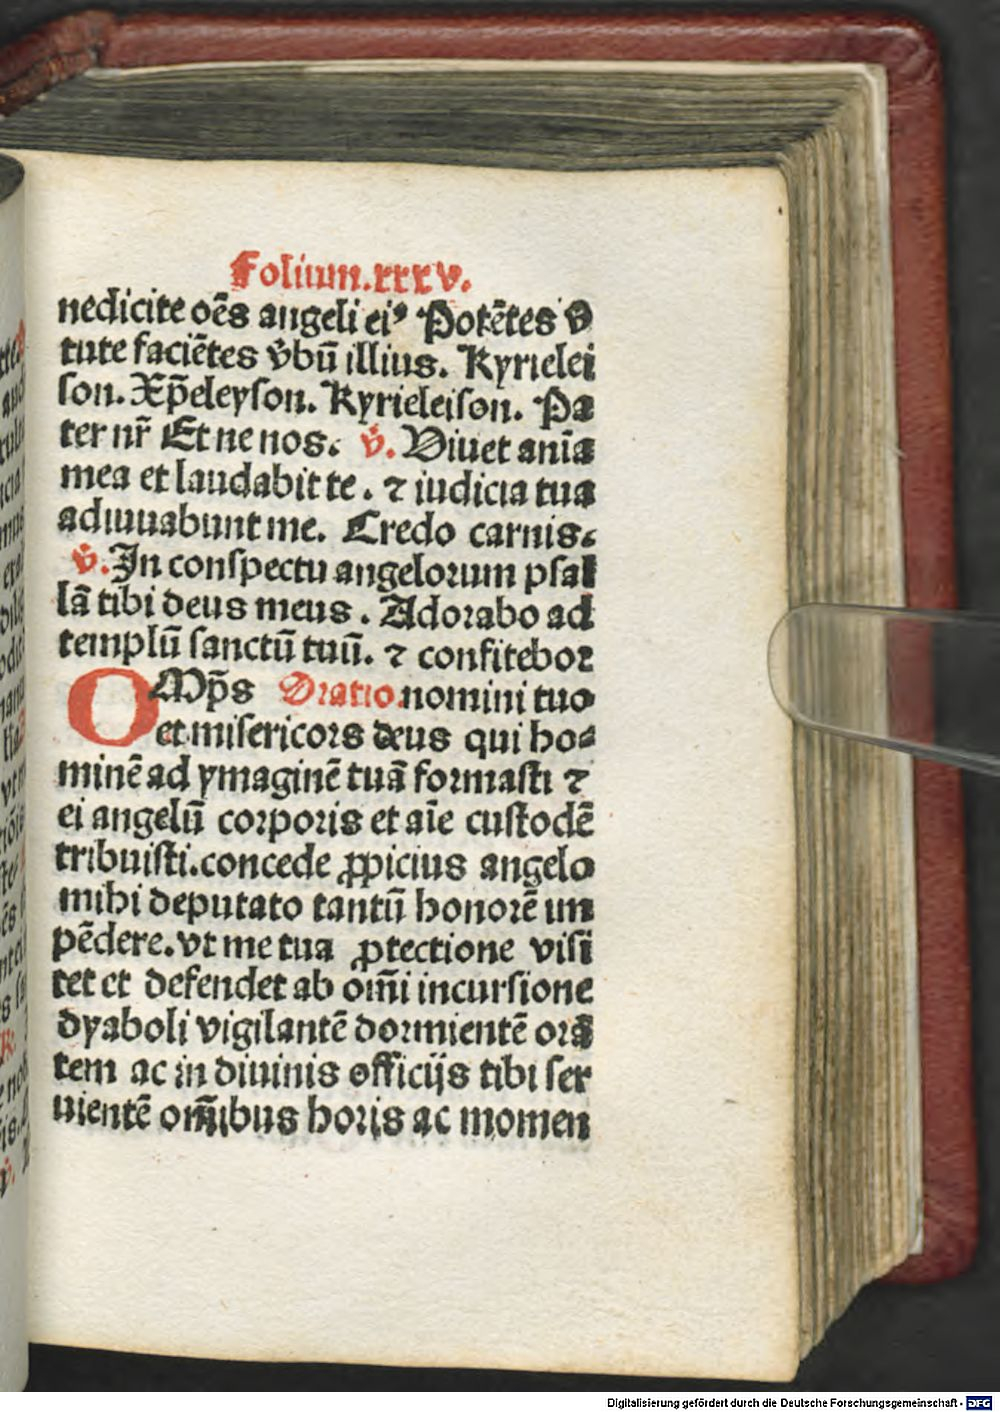 Folium.xxxv.
nedicite oēs angeli eiꝰ Potētes v̄
tute faciētes v̄bū illius. Kyrielei
son. Xp̄eleyson. Kyrieleison. Pa
ter nr̄ Et ne nos. v̄. Viuet anīa
mea et laudabit te. ⁊ iudicia tua
adiuuabunt me. Credo carnis.
v̄. In conspectu angelorum psal
lā tibi deus meus. Adorabo ad
templū sanctū tuū. ⁊ confitebor
OMp̄s Oratio. nomini tuo
et misericors deus qui ho⸗
minē ad ymaginē tuā formasti ⁊
ei angelū corporis et aīe custodē
tribuisti. concede ꝓpicius angelo
mihi deputato tantū honorē im
pēdere. vt me tua ꝓtectione visi
tet et defendet ab om̄i incursione
dyaboli vigilantē dormientē orā
tem ac in diuinis officijs tibi ser
uientē om̄ibus horis ac momen
Digitalisierung gefördert durch die Deutsche Forschungsgemeinschaft - DFG